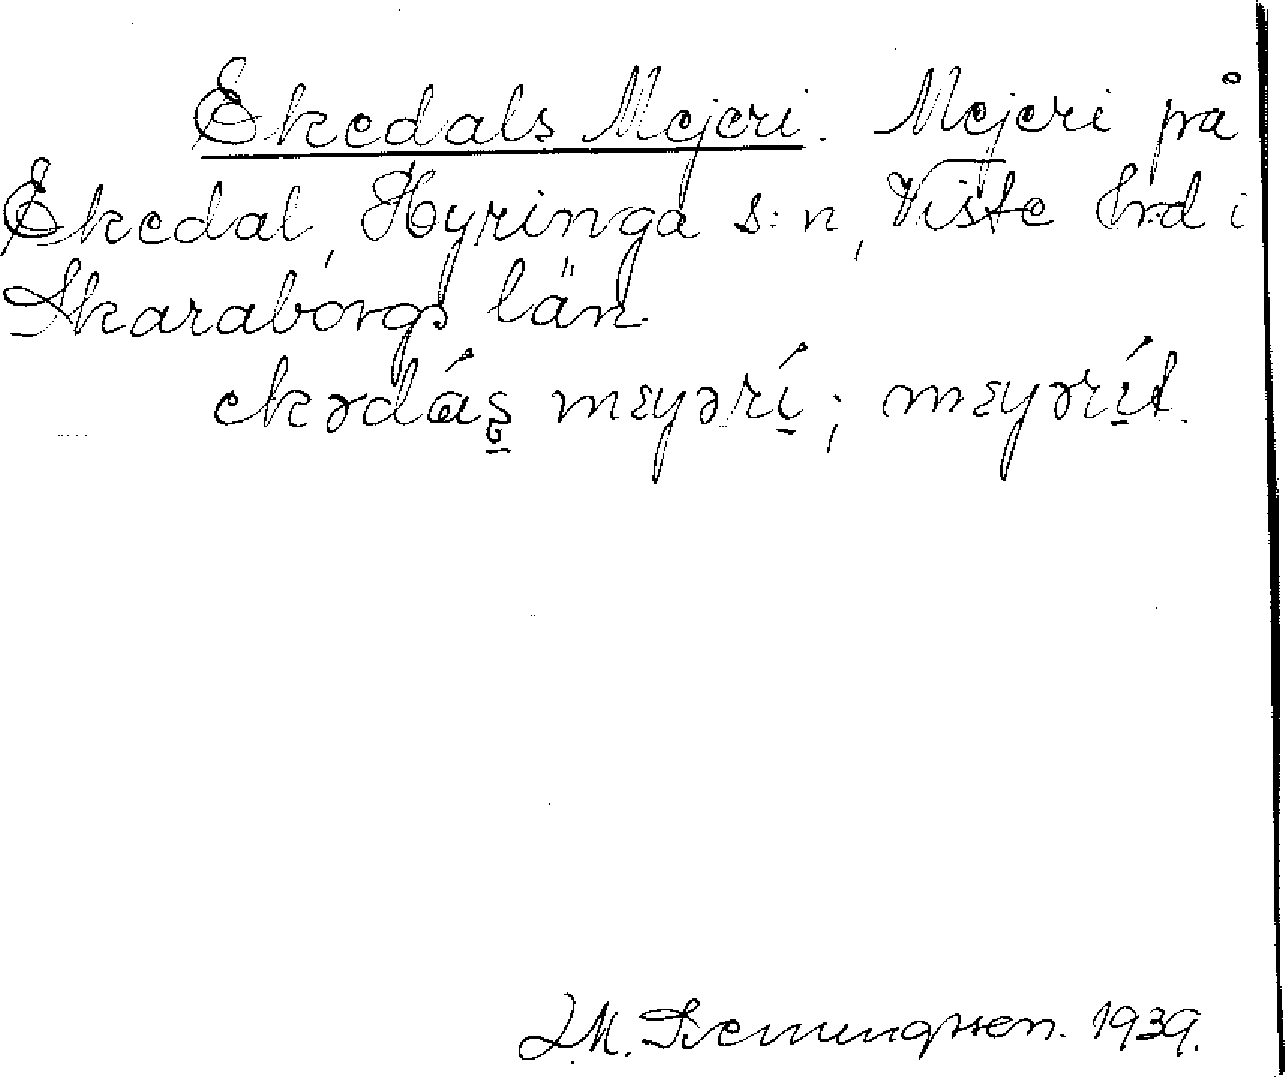 Ekedals Mejeri. Mejeri på
Ekedal, Hyringa s:n, Viste hrd i
Skaraborgs län.
ekədáʂ mɛyərí; mɛyərít.
1939.